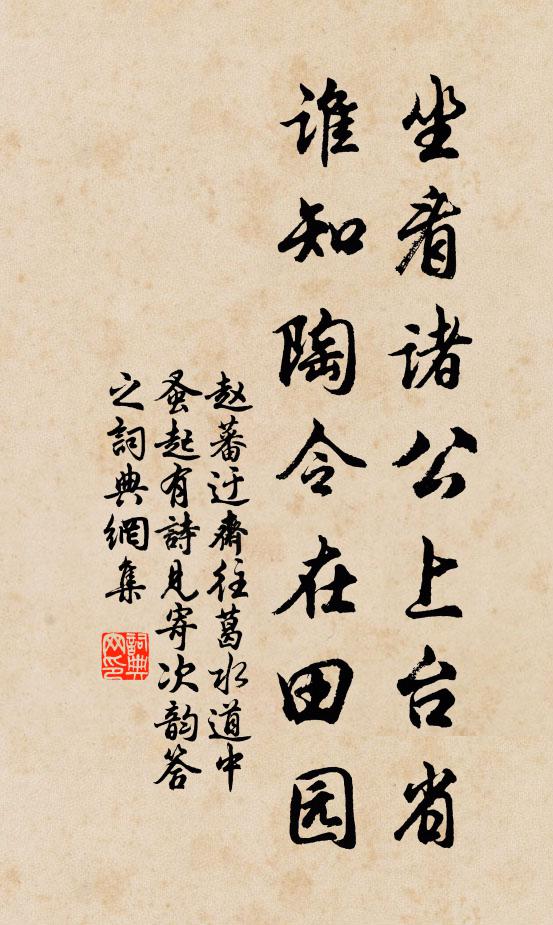 坐看诸公上台省
谁知陶令在田园
赵蕃迂齋往葛水道中
蚤起有詩見寄次韵答
之詞典網集
詞典網印